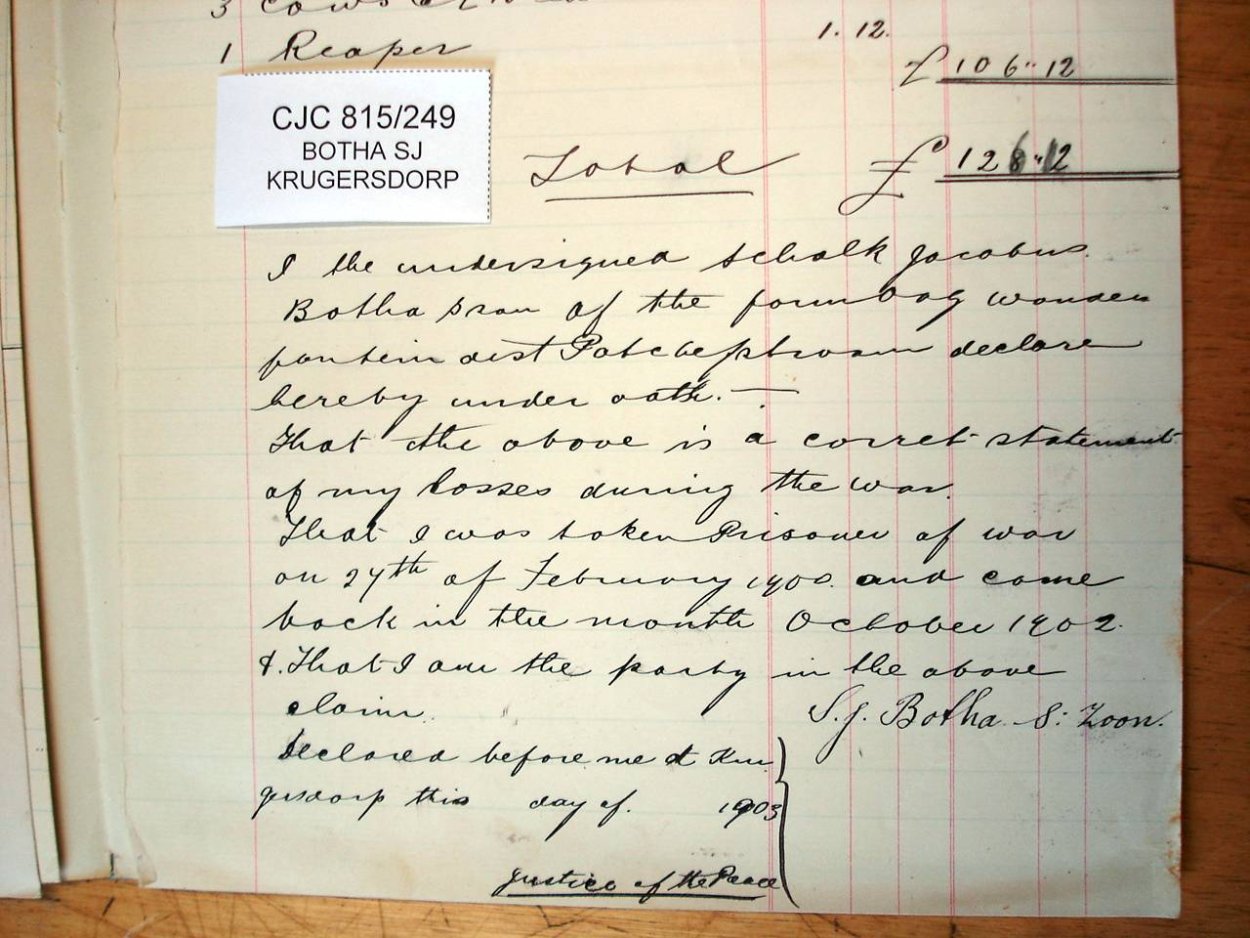 3 cows
1 Reaper 1. 12.
£ 106 " 12
CJC 815/249
BOTHA SJ
KRUGERSDORP
Total £ 126 " 12
I the undersigned Schalk Jacobus
Botha Szon of the farm Dog wonder
fontein dist Potchefstroom declare
hereby under oath. —
That the above is a corret statement
of my losses during the war.
That I was taken Prisoner of war
on 27th of February 1900. and come
back in the month October 1902.
&. That I am the party in the above
claim. S. J. Botha S: Zoon.
Declared before me at Kru
gersdorp this day of. 1903
Justice of the Peace